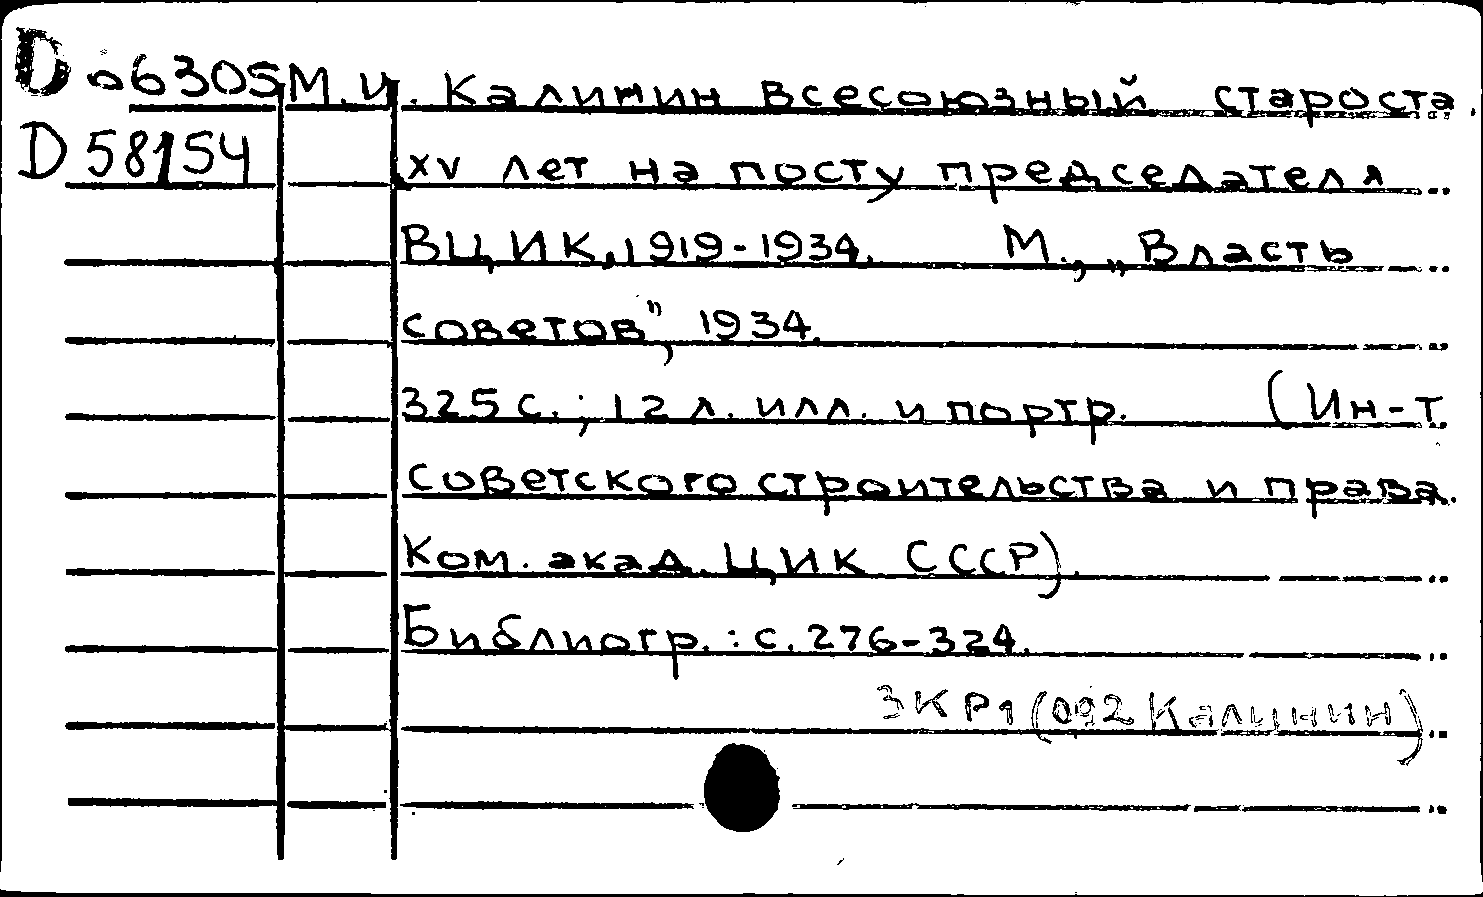 D 06305 М.И. Калинин всесоюзный староста.
D 58154 XV лет на посту председателя
ВЦИК, 1919-1934. М., „Власть
советов”, 1934.
325 с.; 12 л. илл. и портр. (Ин-т
советского строительства и права.
Ком. акад. ЦИК СССР).
Библиогр.: с. 276-324.
3КР1(092 Калинин)